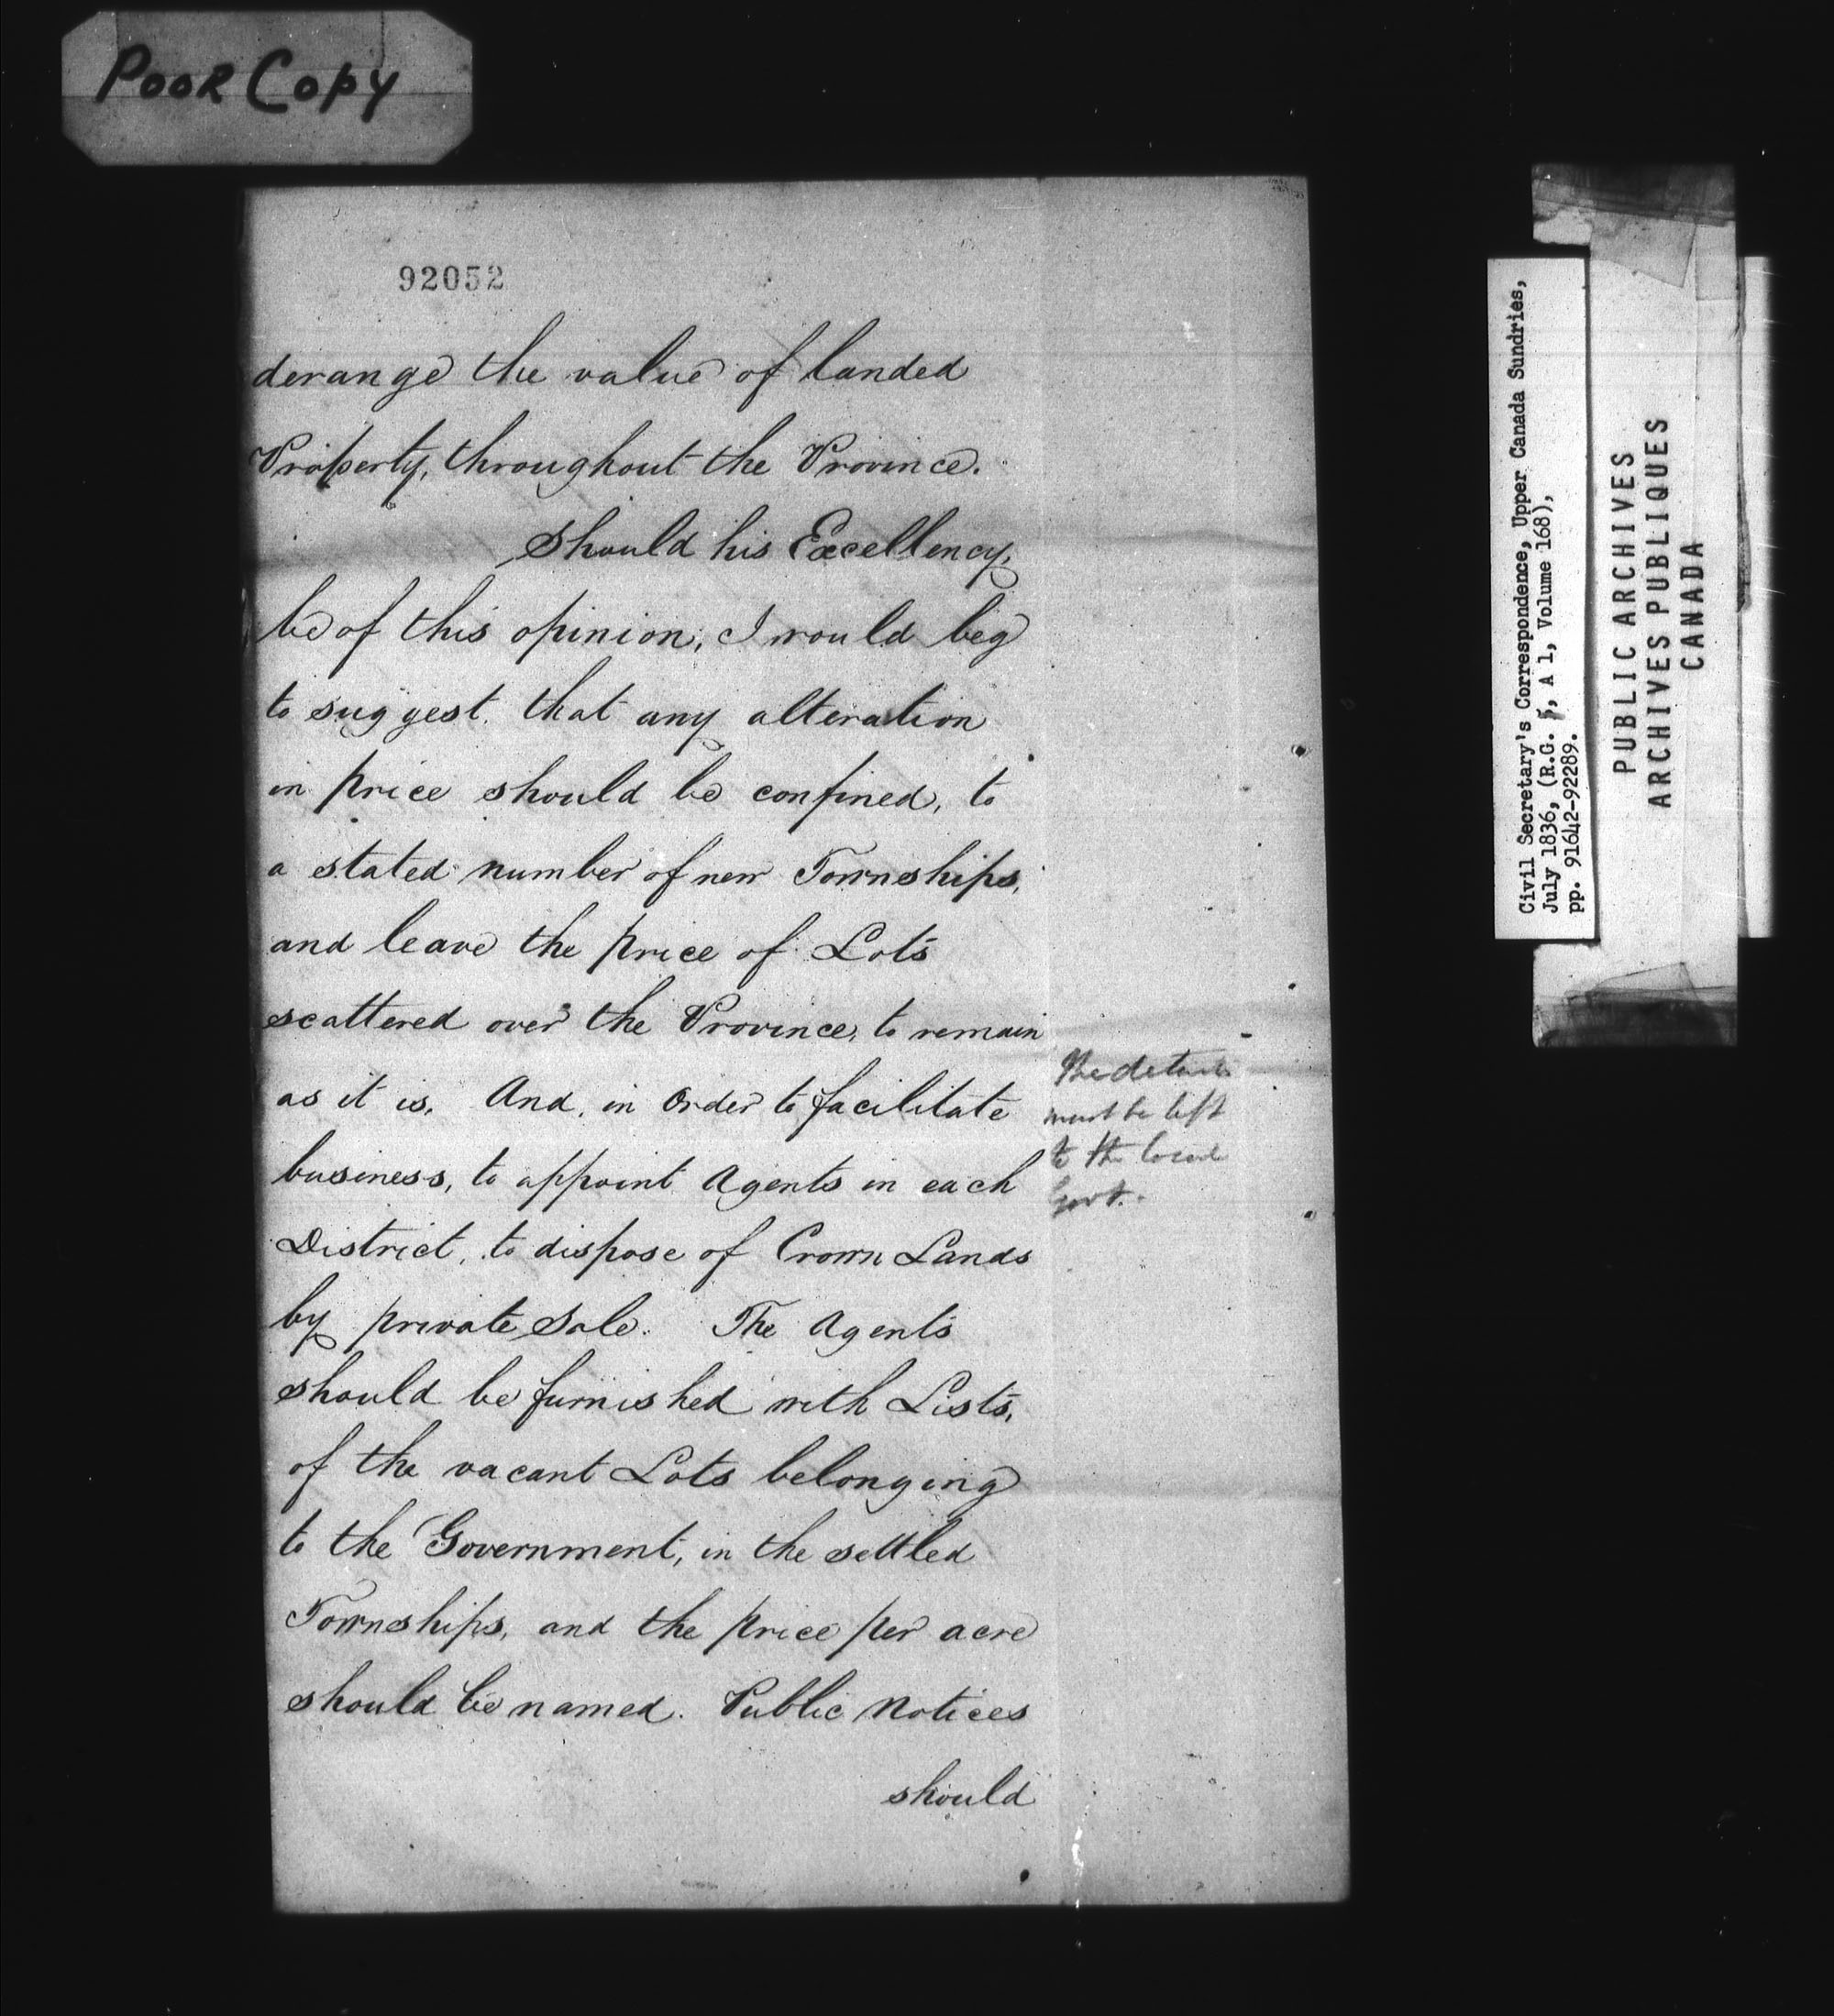 Poor Copy
92052
derange the value of landed
Property, throughout the Province.
Should his Excellency,
be of this opinion, I would beg
to suggest. that any alteration
in price should be confined, to
a stated number of new Townships,
and leave the price of Lots
scattered over the Province, to remain
as it is. And, in Order to facilitate
business, to appoint Agents in each
District, to dispose of Crown Lands
by private Sale. The Agents
should be furnished with Lists,
of the vacant Lots belonging
to the Government, in the settled
Townships, and the price per acre
should be named. Public Notices
should
The details
must be left
to the local
Govt.
Civil Secretary's Correspondence, Upper Canada Sundries,
July 1836, (R.G. 5, A 1, Volume 168),
pp. 91642-92289.
PUBLIC ARCHIVES
ARCHIVES PUBLIQUES
CANADA